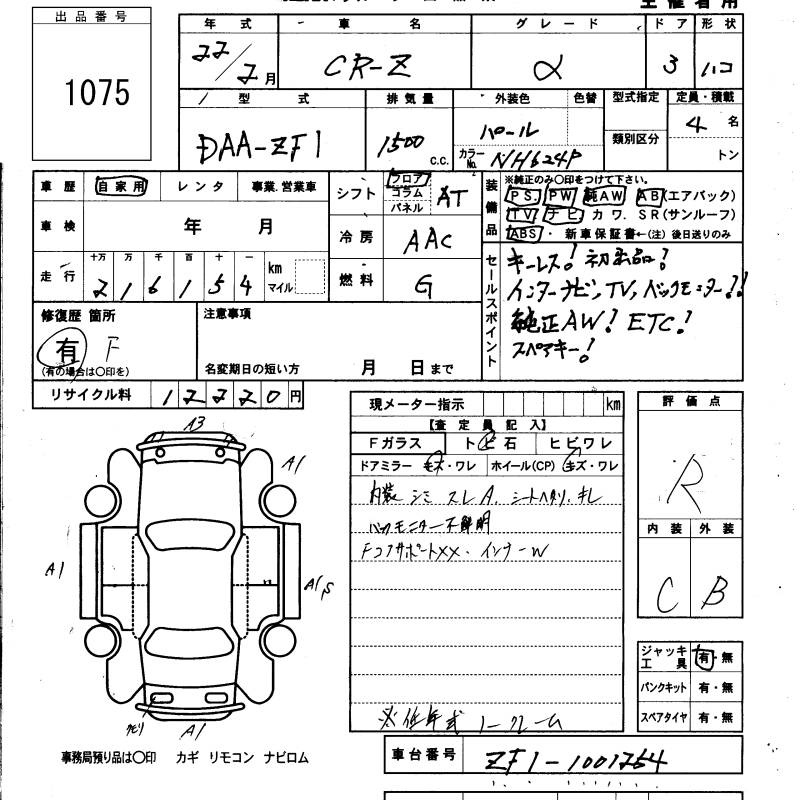 出品番号
1075
年式 車名 グレード ドア 形状
22/2月 CR-Z α 3 ハコ
型式 排気量 外装色 色替 型式指定 定員・積載
DAA-ZF1 1500 c.c. パール 類別区分 4名
カラーNo. NH624P トン
車歴 自家用 レンタ 事業.営業車
車検 年 月
走行 十万 万 千 百 十 一 km マイル
2 1 6 1 5 4
シフト フロア コラム パネル AT
冷房 AAC
燃料 G
装備品 ※純正のみ〇印をつけて下さい。
PS PW 純AW AB(エアバック)
TV ナビ カワ. SR(サンルーフ)
ABS ・ 新車保証書←(注)後日送りのみ
セールスポイント
キーレス! 初出品!
インターナビ, TV, バックモニター!!
純正AW! ETC!
スペアキー!
修復歴 箇所
有 F
(有の場合は〇印を)
注意事項
名変期日の短い方 月 日まで
リサイクル料 12220円
現メーター指示 km
【査定員記入】
Fガラス トビ石 ヒビワレ
ドアミラー キズ・ワレ ホイール(CP) キズ・ワレ
内装 シミ スレA. シートヘタリ. キレ
バックモニター不鮮明
Fコアサポートxx. インナーW
※低年式 ノークレーム
評価点
R
内装 外装
C B
ジャッキ工具 有・無
パンクキット 有・無
スペアタイヤ 有・無
A3
A1
A1
A1
A1
事務局預り品は〇印 カギ リモコン ナビロム
車台番号 ZF1-1001264